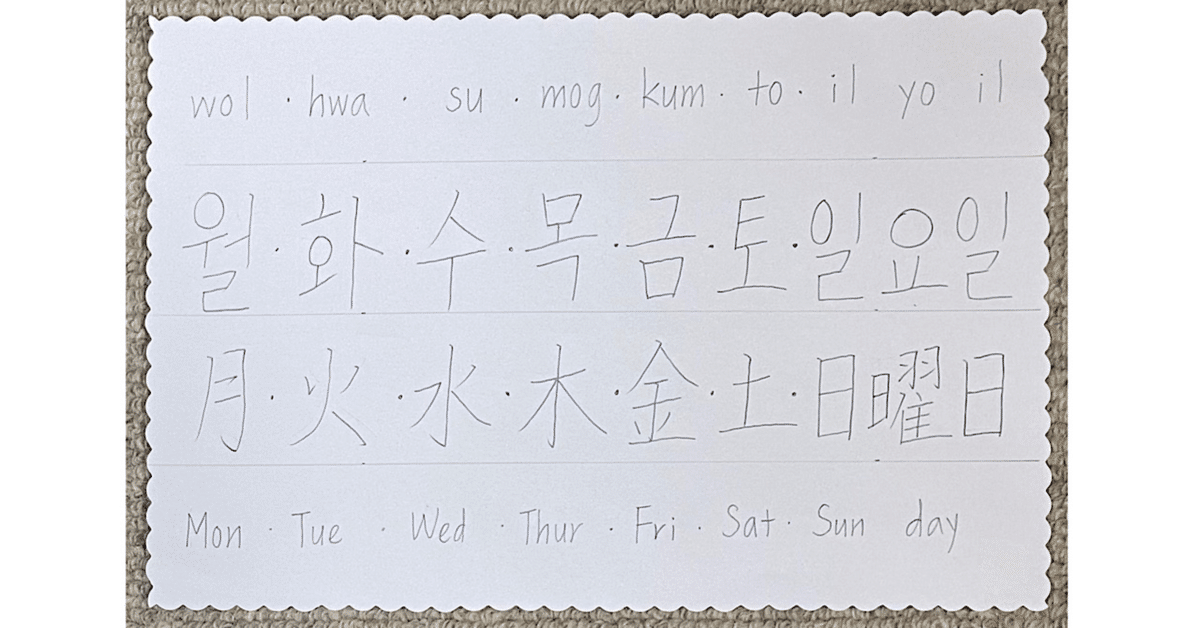 wol · hwa · su · mog · kum · to · il yo il
월 · 화 · 수 · 목 · 금 · 토 · 일요일
月 · 火 · 水 · 木 · 金 · 土 · 日曜日
Mon · Tue · Wed · Thur · Fri · Sat · Sun day